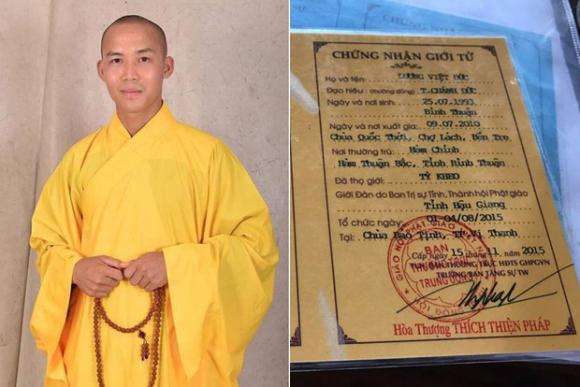 CHỨNG NHẬN GIỚI TỬ
Họ và tên: LƯƠNG VIỆT ĐỨC
Đạo hiệu (thường dùng) T.CHÁNH ĐỨC
Ngày và nơi sinh: 25.07.1993
Bình Thuận
Ngày và nơi xuất gia: 09.07.2010
Chùa Quốc Thới, Chợ Lách, Bến Tre
Nơi thường trú: Hàm Chính
Hàm Thuận Bắc, Tỉnh Bình Thuận
Đã thọ giới: TỲ KHEO
Giới Đàn do Ban Trị sự Tỉnh, Thành hội Phật giáo
Tỉnh Hậu Giang
Tổ chức ngày: 01-04/08/2015
Tại: Chùa Bảo Tịnh, TP.Vị Thanh
Cấp ngày 15 tháng 11 năm 2015
THƯỜNG TRỰC HĐTS GHPGVN
TRƯỞNG BAN TĂNG SỰ TW
GIÁO HỘI PHẬT GIÁO VIỆT NAM
BAN
TRUNG ƯƠNG
HỘI ĐỒNG
Hòa Thượng THÍCH THIỆN PHÁP